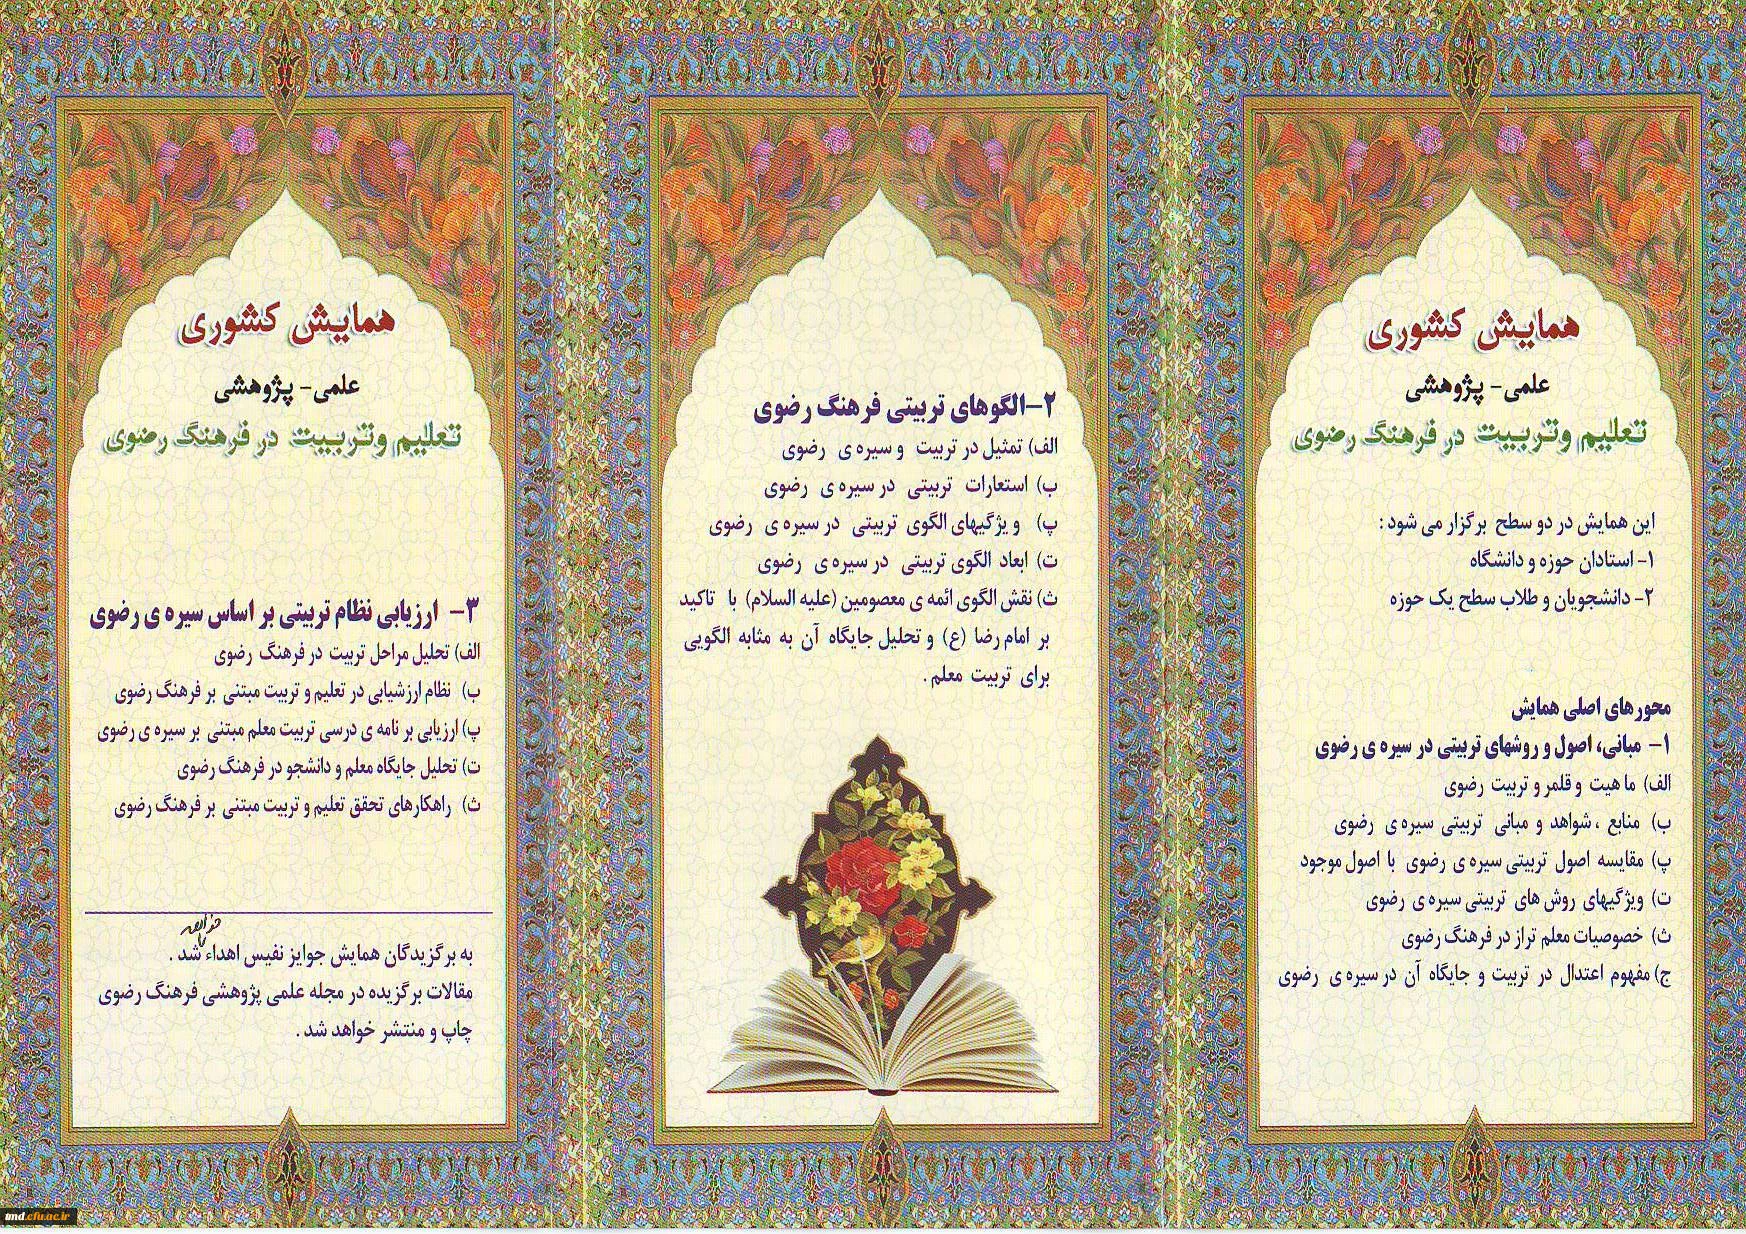 همایش کشوری
علمی- پژوهشی
تعلیم وتربیت در فرهنگ رضوی
این همایش در دو سطح برگزار می شود :
۱- استادان حوزه و دانشگاه
۲- دانشجویان و طلاب سطح یک حوزه
محورهای اصلی همایش
۱- مبانی، اصول و روشهای تربیتی در سیره ی رضوی
الف) ماهیت و قلمر و تربیت رضوی
ب) منابع ، شواهد و مبانی تربیتی سیره ی رضوی
پ) مقایسه اصول تربیتی سیره ی رضوی با اصول موجود
ت) ویژگیهای روش های تربیتی سیره ی رضوی
ث) خصوصیات معلم تراز در فرهنگ رضوی
ج) مفهوم اعتدال در تربیت و جایگاه آن در سیره ی رضوی
۲-الگوهای تربیتی فرهنگ رضوی
الف) تمثیل در تربیت و سیره ی رضوی
ب) استعارات تربیتی در سیره ی رضوی
پ) ویژگیهای الگوی تربیتی در سیره ی رضوی
ت) ابعاد الگوی تربیتی در سیره ی رضوی
ث) نقش الگوی ائمه ی معصومین (علیه السلام) با تاکید
بر امام رضا (ع) و تحلیل جایگاه آن به مثابه الگویی
برای تربیت معلم .
همایش کشوری
علمی- پژوهشی
تعلیم وتربیت در فرهنگ رضوی
۳- ارزیابی نظام تربیتی بر اساس سیره ی رضوی
الف) تحلیل مراحل تربیت در فرهنگ رضوی
ب) نظام ارزشیابی در تعلیم و تربیت مبتنی بر فرهنگ رضوی
پ) ارزیابی برنامه ی درسی تربیت معلم مبتنی بر سیره ی رضوی
ت) تحلیل جایگاه معلم و دانشجو در فرهنگ رضوی
ث) راهکارهای تحقق تعلیم و تربیت مبتنی بر فرهنگ رضوی
خواهد
به برگزیدگان همایش جوایز نفیس اهداء شد .
مقالات برگزیده در مجله علمی پژوهشی فرهنگ رضوی
چاپ و منتشر خواهد شد .
tmd.cfu.ac.ir